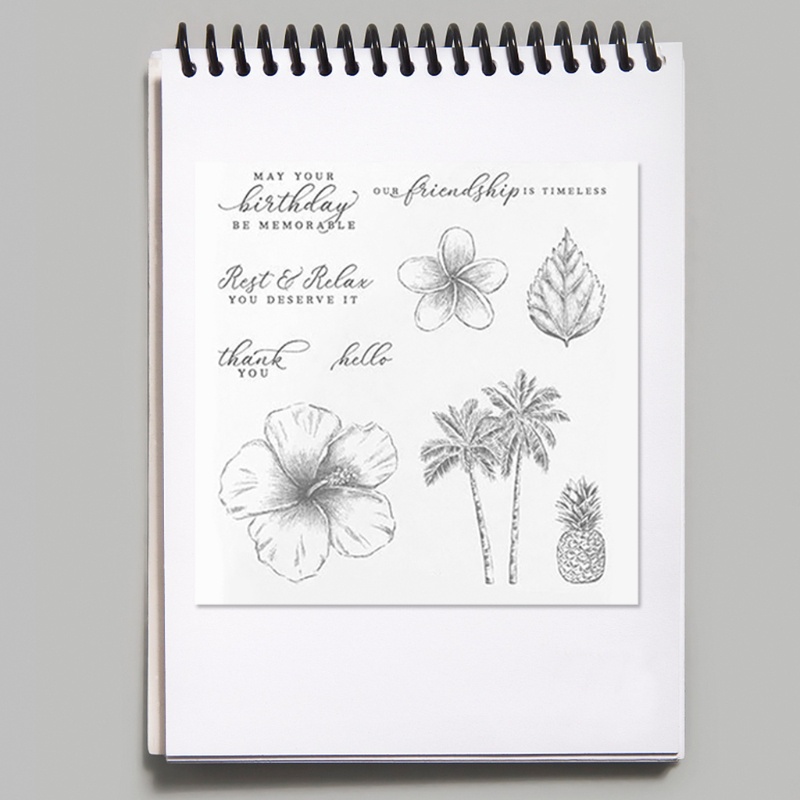 MAY YOUR
birthday
BE MEMORABLE
OUR friendship IS TIMELESS
Rest & Relax
YOU DESERVE IT
thank
YOU
hello